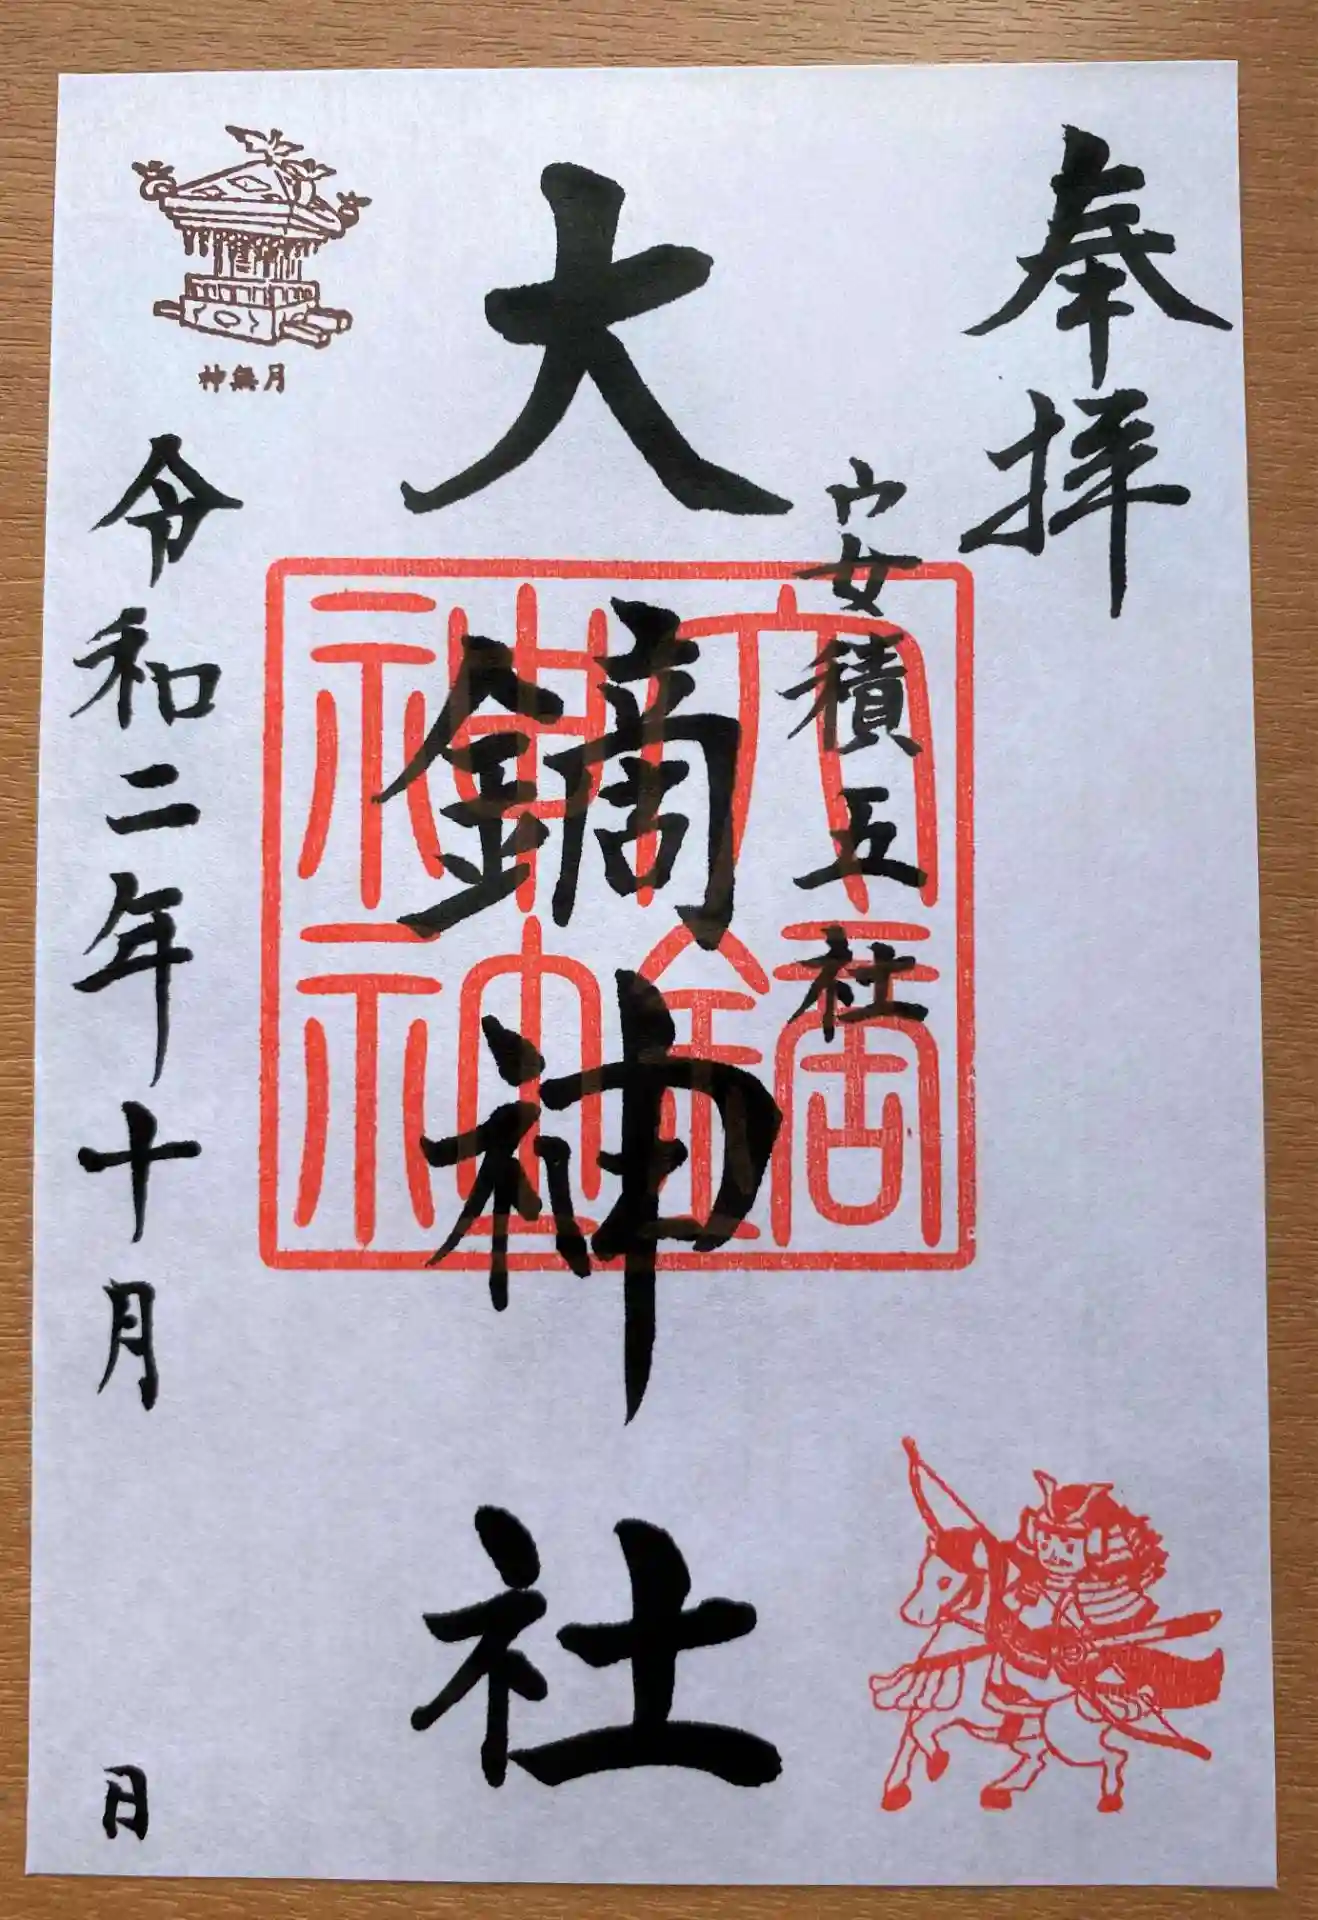 奉拝
安積五社
大鏑神社
大鏑
神社
神無月
令和二年十月 日